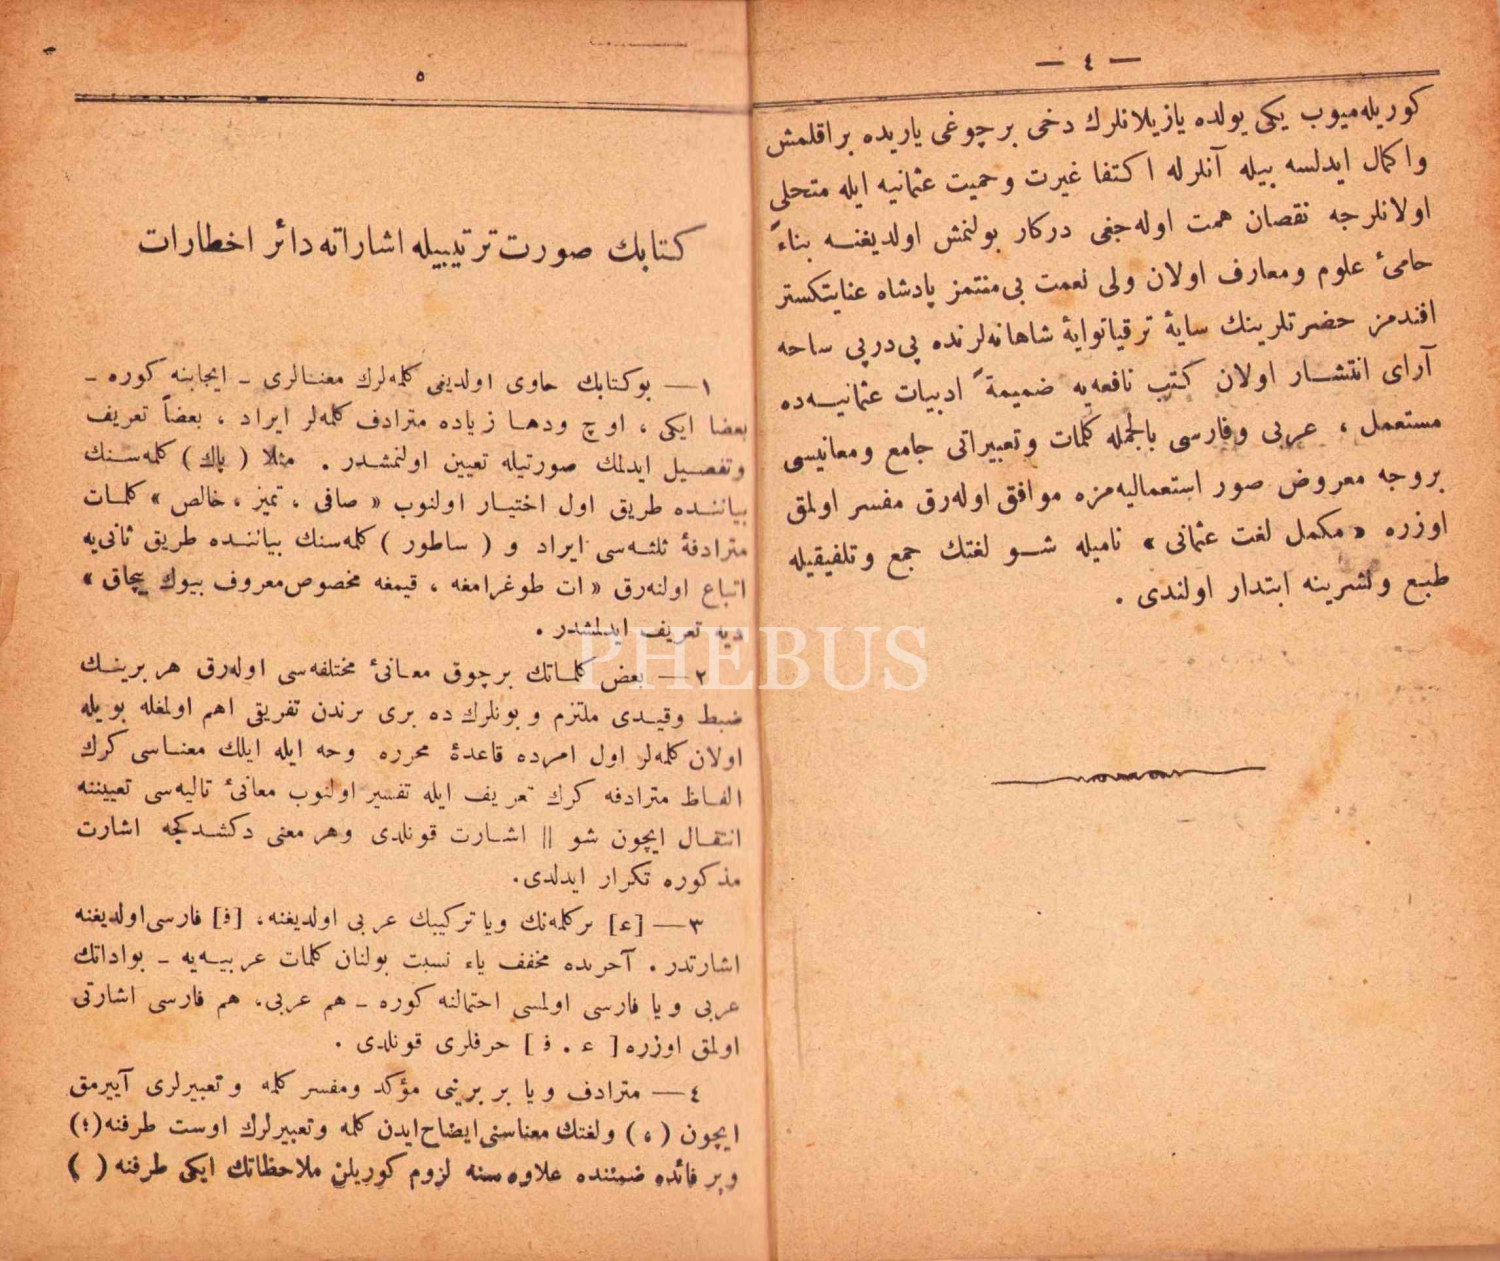 — ٤ —
كوریله‌میوب یكی یولده یازیلانلرك دخی برچوغی یاریده براقلمش
واكمال ایدلسه بیله آنلرله اكتفا غیرت وحمیت عثمانیه ایله متحلی
اولانلرجه نقصان همت اوله‌جغی دركار بولنمش اولدیغنه بناءً
حامیٔ علوم ومعارف اولان ولی نعمت بی‌منتمز پادشاه عنایتكستر
افندمز حضرتلرینك سایهٔ ترقیاتوایهٔ شاهانه‌لرنده پی‌درپی ساحه
آرای انتشار اولان كتب نافعه‌یه ضمیمةً ادبیات عثمانیه‌ده
مستعمل ، عربی وفارسی بالجمله كلمات وتعبیراتی جامع ومعانیسی
بروجه معروض صور استعمالیه‌مزه موافق اوله‌رق مفسر اولمق
اوزره « مكمل لغت عثمانی » نامیله شو لغتك جمع وتلفیقیله
طبع ونشرینه ابتدار اولندی .
٥
كتابك صورت ترتیبیله اشاراته دائر اخطارات
١ — بوكتابك حاوی اولدیغی كلمه‌لرك معنالری ـ ایجابنه كوره ـ
بعضا ایكی ، اوچ ودها زیاده مترادف كلمه‌لر ایراد ، بعضاً تعریف
وتفصیل ایدلمك صورتیله تعیین اولنمشدر . مثلا ( پاك ) كلمه‌سنك
بیاننده طریق اول اختیار اولنوب « صافی ، تمیز ، خالص » كلمات
مترادفهٔ ثلثه‌سی ایراد و ( ساطور ) كلمه‌سنك بیاننده طریق ثانی‌یه
اتباع اولنه‌رق « ات طوغرامغه ، قیمغه مخصوص معروف بیوك بچاق »
دیه تعریف ایدلمشدر .
٢ — بعض كلماتك برچوق معانیٔ مختلفه‌سی اوله‌رق هر برینك
ضبط وقیدی ملتزم و بونلرك ده بری برندن تفریقی اهم اولمغله بویله
اولان كلمه‌لر اول امرده قاعدهٔ محرره وجه ایله ایلك معناسی كرك
الفاظ مترادفه كرك تعریف ایله تفسیر اولنوب معانیٔ تالیه‌سی تعییننه
انتقال ایچون شو || اشارت قونلدی وهر معنی دكشدكجه اشارت
مذكوره تكرار ایدلدی.
٣ — [ع] بركلمه‌نك ویا تركیبك عربی اولدیغنه، [ف] فارسی اولدیغنه
اشارتدر . آخرنده مخفف یاء نسبت بولنان كلمات عربیه‌یه ـ بواداتك
عربی ویا فارسی اولمسی احتمالنه كوره ـ هم عربی، هم فارسی اشارتی
اولمق اوزره [ ع . ف ] حرفلری قونلدی .
٤ — مترادف ویا بر برینی مؤكد ومفسر كلمه وتعبیرلری آییرمق
ایچون ( ، ) ولغتك معناسنی ایضاح ایدن كلمه وتعبیرلرك اوست طرفنه (؛)
وبر فائده ضمننده علاوه‌سنه لزوم كوریلن ملاحظاتك ایكی طرفنه ( )
PHEBUS